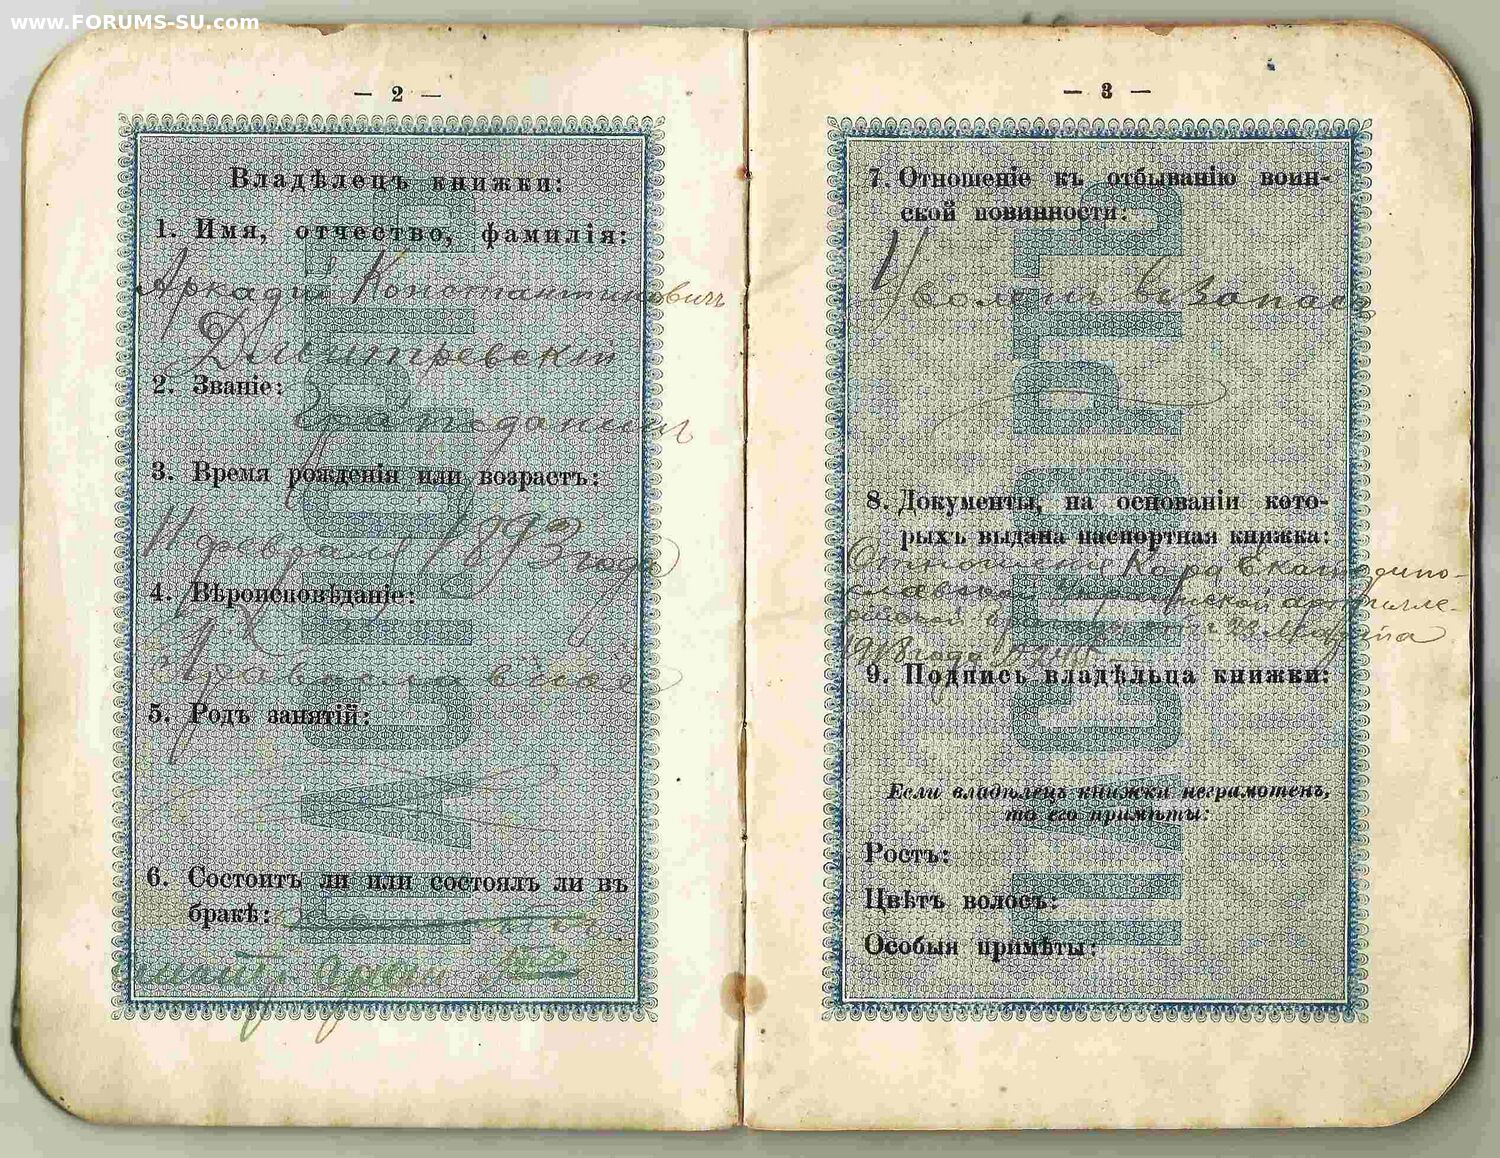 www.FORUMS-SU.com
— 2 —
Владѣлецъ книжки:
1. Имя, отчество, фамилія:
Аркадій Константиновичъ
Дмитревскій
2. Званіе:
Гражданинъ
3. Время рожденія или возрастъ:
11 февраля 1893 года
4. Вѣроисповѣданіе:
Православное
5. Родъ занятій:
6. Состоитъ ли или состоялъ ли въ
бракѣ:
— 3 —
7. Отношеніе къ отбыванію воин-
ской повинности:
Уволенъ въ запасъ
8. Документы, на основаніи кото-
рыхъ выдана паспортная книжка:
Отношеніе Екатерино-
славской артилле-
1918 года
9. Подпись владѣльца книжки:
Если владѣлецъ книжки неграмотенъ,
то его примѣты:
Ростъ:
Цвѣтъ волосъ:
Особыя примѣты:
ПАСПОРТЪ
ПАСПОРТЪ